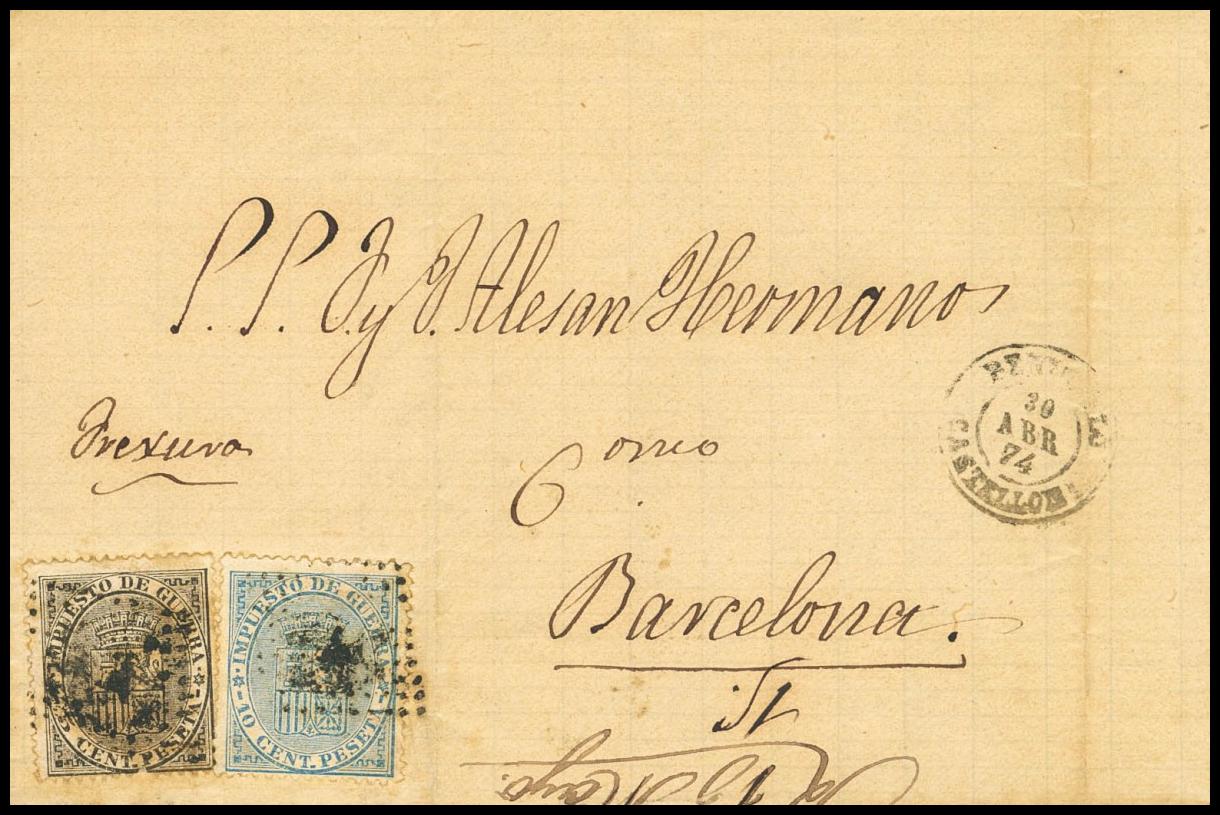 P. P. J. y J. Alesan Hermanos
Trexura
Como
Barcelona.
30
ABR
74
CASTELLON
IMPUESTO DE GUERRA
5 CENT. PESETA
IMPUESTO DE GUERRA
10 CENT. PESETA